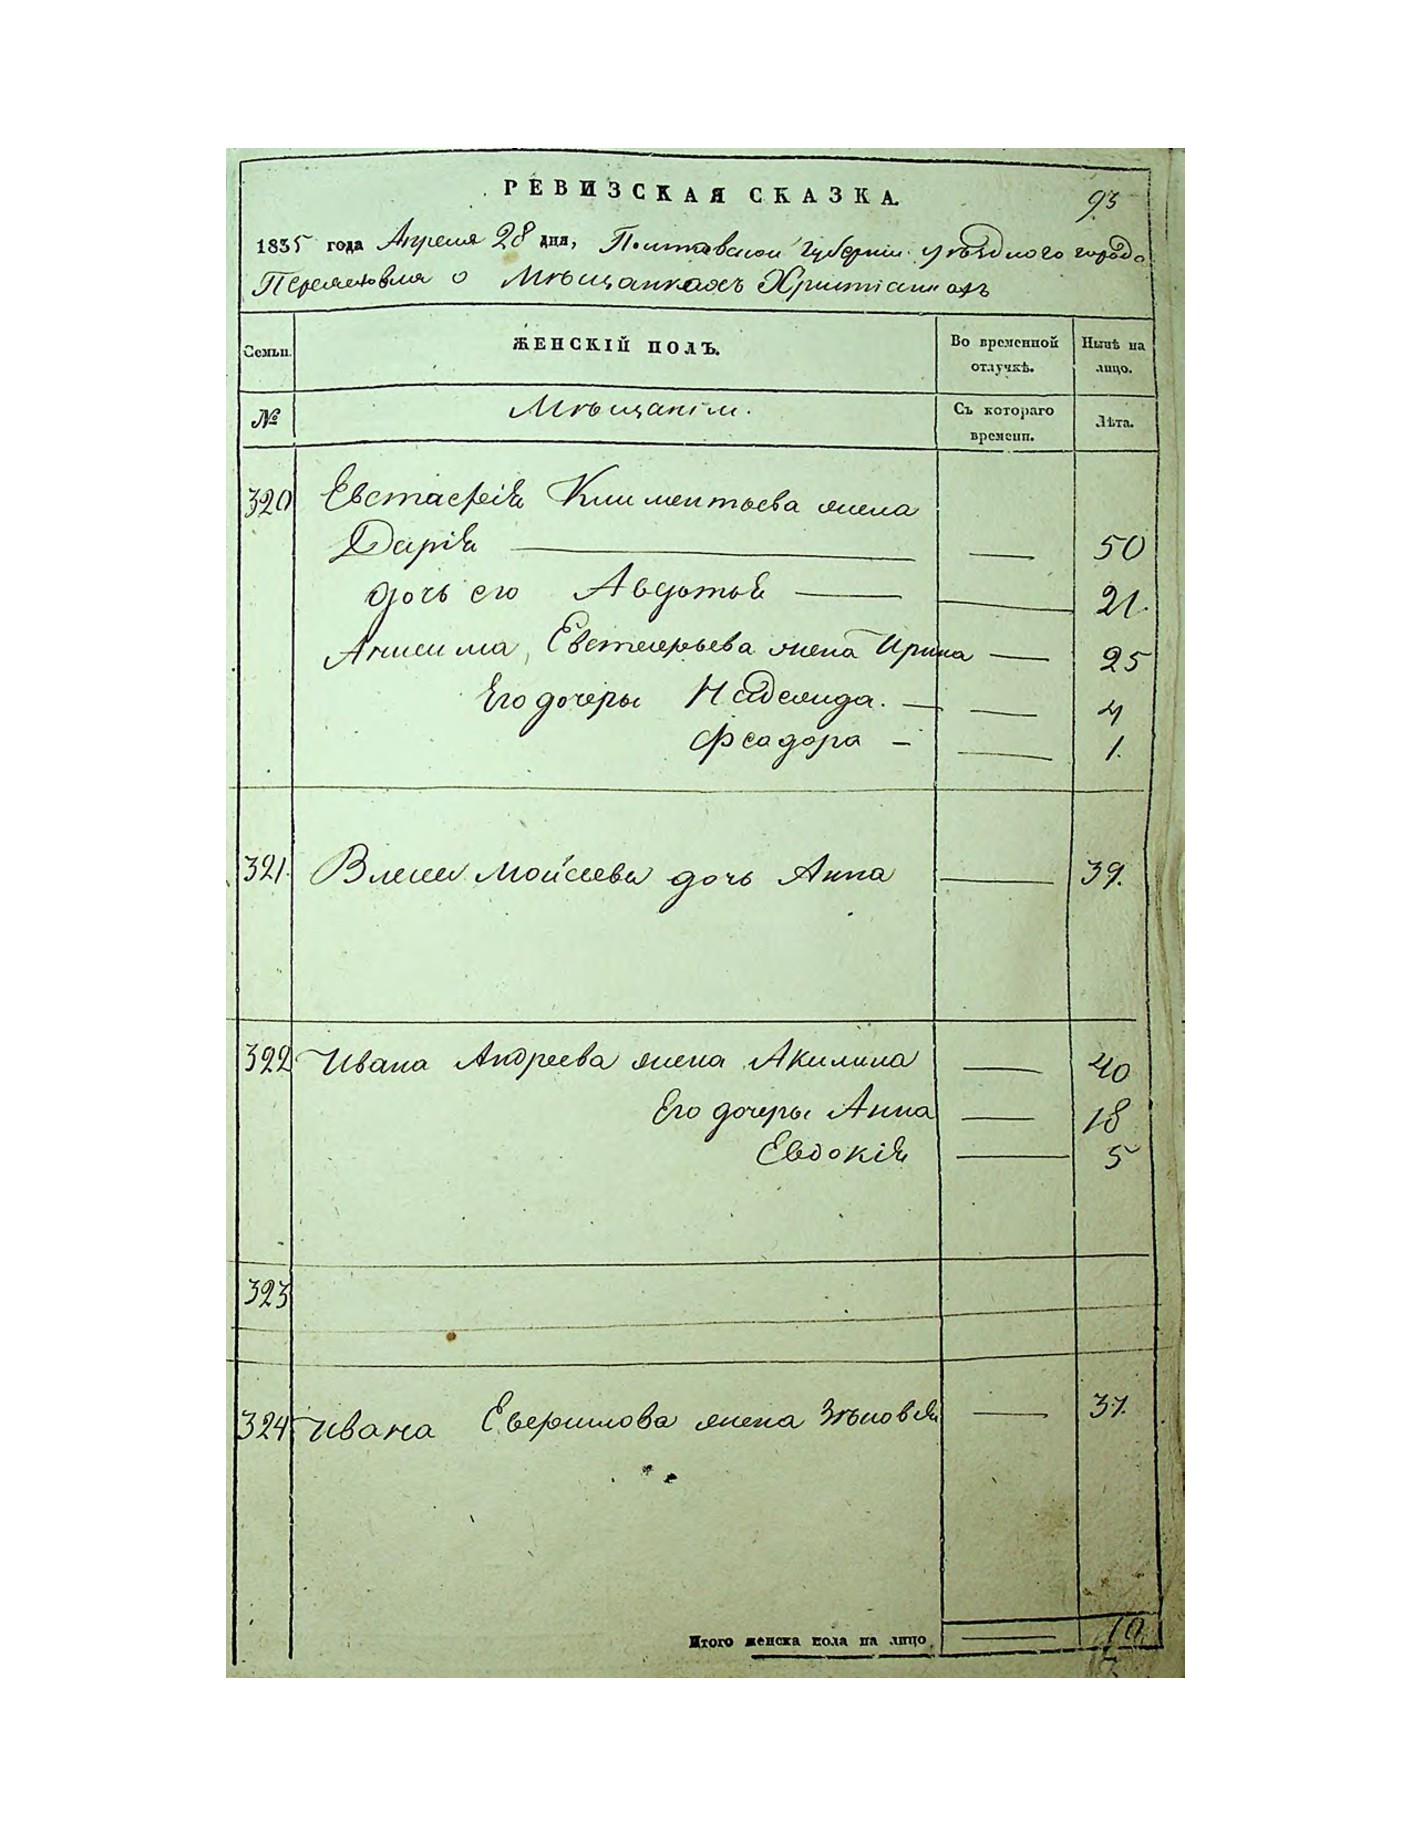 РЕВИЗСКАЯ СКАЗКА.
93
1835 года Апреля 28 дня, Полтавской Губернии уѣздного города
Переяславля о Мѣщанкахъ Христіанахъ
Семьи. ЖЕНСКІЙ ПОЛЪ. Во временной отлучкѣ. Нынѣ на лицо.
№ Мѣщанки. Съ котораго времени. Лѣта.
320 Евстафія Климентьева жена
Дарія — 50
дочь его Авдотья — 21.
Анисима Евстафьева жена Ирина — 25
Его дочеры Надежда. — 4
Феадора — 1.
321. Власа Мойсеева дочь Анна — 39.
322 Ивана Андреева жена Акилина — 40
Его дочеры Анна — 18
Евдокія — 5
323
324 Ивана жена Зѣновія — 37.
Итого женска пола на лицо — 10